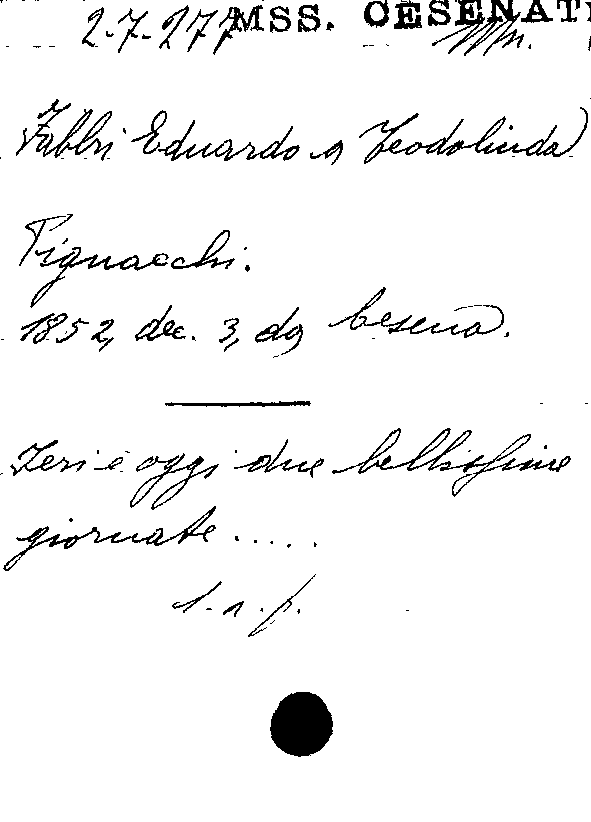 2-7-277 MSS. CESENATI
Fabbri Eduardo a Teodolinda
Pignacchi.
1852, dec. 3, da Cesena.
Ieri e oggi due bellissime
giornate .....
l. a. f.